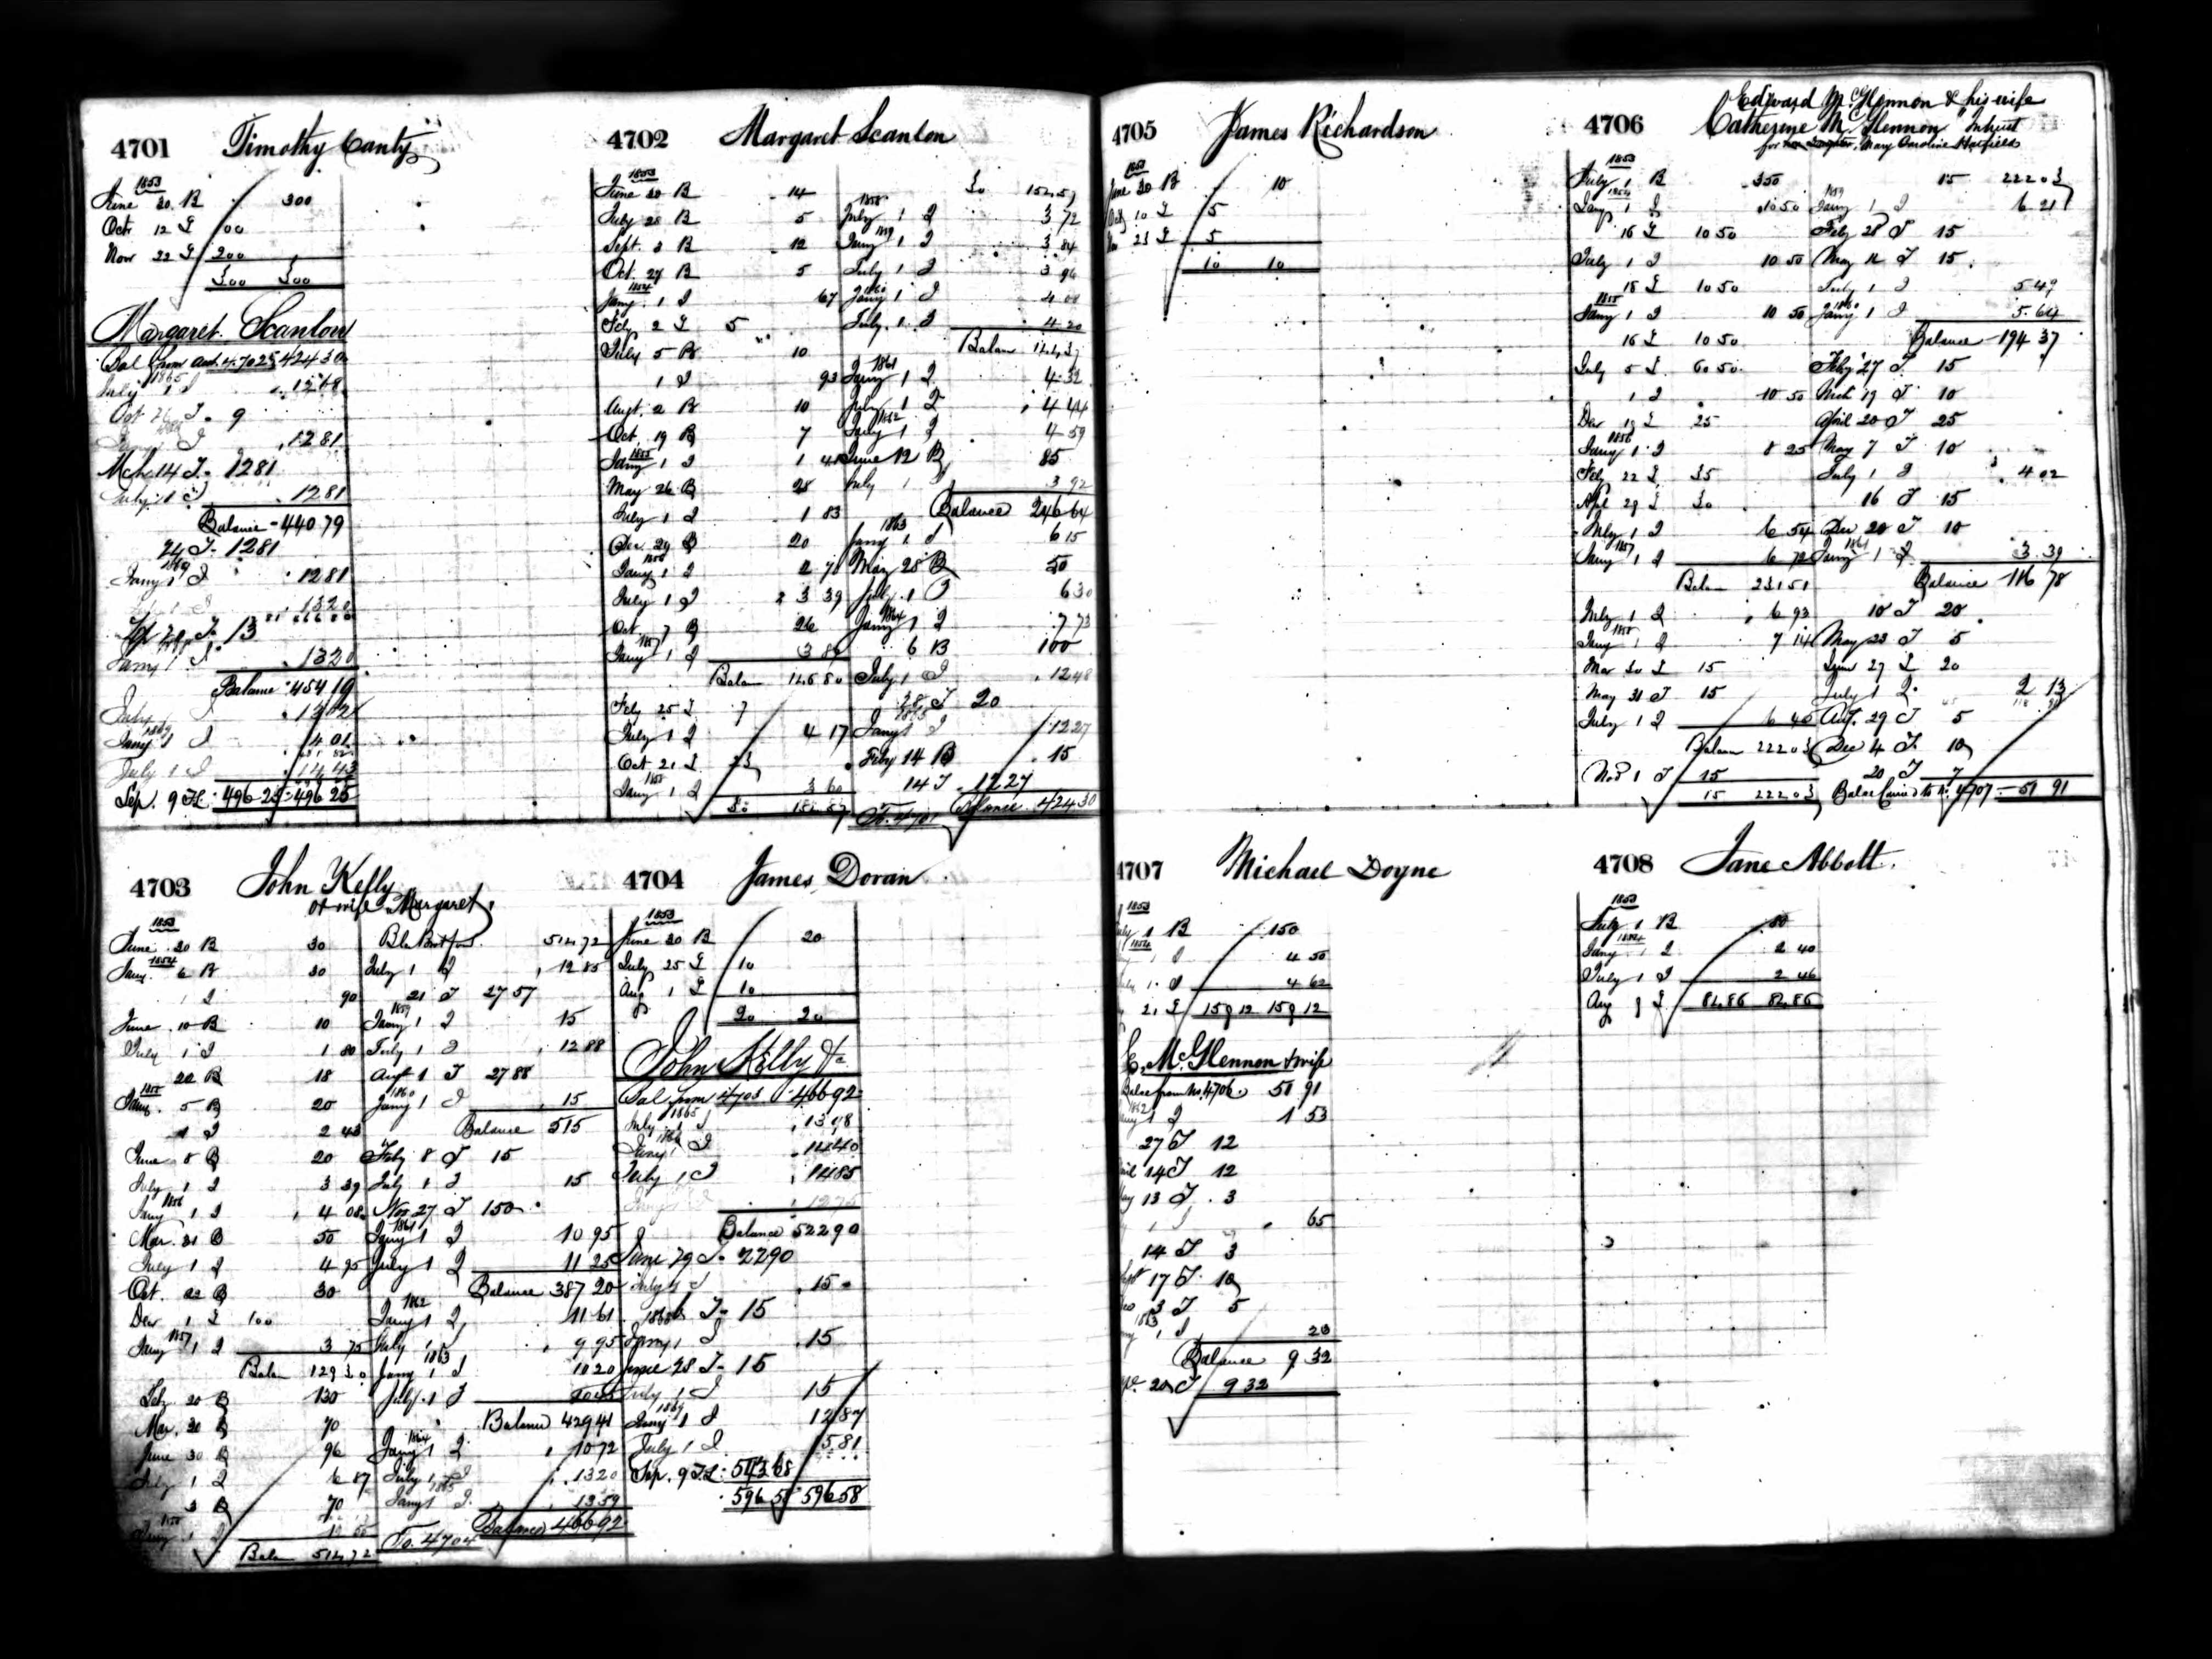 4701 Timothy Canty
1853
June 20 B 300
Oct 12 L 100
Nov 22 L 200
300 300
Margaret Scanlon
Bal from Acct 4702 $424 30
1865
July 1 I 1268
Oct 26 T 9
Jany 1 I 1281
Mch 14 T 1281
July 1 I 1281
Balance 440 79
24 T 1281
Jany 1 I 1281
1320
13
Jany 1 I 1320
Balance 454 19
July
Jany 1 I
July 1 I 1443
Sep. 9 TL 496 25 496 25
4702 Margaret Scanlon
1853
June 20 B 14
July 28 B 5
Sept. 3 B 12
Oct. 27 B 5
1854
Jany 1 I 67
Feby 2 L 5
July 5 B 10
1 I 93
Augt. 2 B 10
Oct. 19 B 7
1855
Jany 1 I 1 41
May 26 B 28
July 1 I 1 83
Dec. 29 B 20
1856
Jany 1 I 2 70
July 1 I 3 39
Oct. 7 B 26
1857
Jany 1 I
Balan 146 80
Feby 25 L 7
July 1 I 4 17
Oct 21 L 23
1858
Jany 1 I 3 60
30 154 57
30 154 57
1858
July 1 I 3 72
1859
Jany 1 I 3 84
July 1 I 3 96
1860
Jany 1 I 4 08
July 1 I 4 20
Balan 144 37
1861
Jany 1 I 4 32
July 1 I 4 44
1862
Jany 1 I 4 59
June 12 B 85
July 1 3 92
Balance 246 64
1863
Jany 1 I 6 15
May 28 B 50
July 1 I 6 30
1864
Jany 1 I 7 73
6 B 100
July 1 I 12 48
28 T 20
1865
Jany 1 I 12 27
Feby 14 B 15
14 T 12 27
To. 4701 Balance 424 30
4703 John Kelly
or wife Margaret
1853
June 20 B 30
1854
Jany. 6 B 30
1 I 90
June 10 B 10
July 1 I 1 80
22 B 18
1855
Jany. 5 B 20
1 I 2 43
June 8 B 20
July 1 I 3 39
1856
Jany 1 I 4 08
Mar. 31 B 50
July 1 I 4 95
Oct. 22 B 30
Dec 1 L 100
1857
Jany 1 I 3 75
Balan 129 30
Feby 20 B 130
Mar. 20 B 70
June 30 B 96
July 1 I 6 87
3 B 70
Jany 1 I
Balan 514 72
Bal Brot ford. 514 72
July 1 I 12 85
21 T 27 57
1859
Jany 1 I 15
July 1 I 12 88
Augt 1 T 27 88
1860
Jany 1 I 15
Balance 515
Feby 8 T 15
July 1 I 15
Nov 27 T 150
1861
Jany 1 I 10 95
July 1 I 11 25
Balance 387 20
1862
Jany 1 I 11 61
July 1 9 95
1863
Jany 1 I 10 20
July 1 I
Balance 429 41
1864
Jany 1 I 10 72
July 1 I 13 20
1865
Jany 1 I. 13 59
To. 4704 Balance 466 92
4704 James Doran
1853
June 20 B 20
July 25 L 10
Aug 1 L 10
20 20
John Kelly &c
Bal from 4703 466 92
1865
July 1 I 1308
1866
Jany 1 I 1440
July 1 I 1485
Balance 522 90
June 29 T 22 90
July 1 I 15
T 15
Jany 1 I 15
June 28 T 15
July 1 I 15
1869
Jany 1 I 12 87
July 1 I 5 81
Sep. 9 TL 543 68
596 58 596 58
4705 James Richardson
1853
June 20 B 10
10 L 5
23 L 5
10 10
4706 Edward McGlennon & his wife
Catherine McGlennon Intrust
for Mary Caroline Hatfield
1853
July 1 B 350
1854
Jany 1 I 10 50
16 L 10 50
July 1 I 10 50
18 L 10 50
1855
Jany 1 I 10 50
16 L 10 50
July 5 L 60 50
1 I 10 50
Dec 19 L 25
1856
Jany 1 I 8 25
Feby 22 L 35
Apl 29 L 30
July 1 I 6 54
1857
Jany 1 I 6 72
Balan 231 51
July 1 I 6 93
1858
Jany 1 I 7 14
Mar 30 L 15
May 31 T 15
July 1 I 6 40
Balan 222 03
Nov 1 T 15
15 222 03
15 222 03
1859
Jany 1 I 6 21
Feby 28 T 15
May 12 T 15
July 1 I 5 49
1860
Jany 1 I 5 64
Balance 194 37
Feby 27 T 15
Mch 19 T 10
April 20 T 25
May 7 T 10
July 1 I 4 02
16 T 15
Dec 20 T 10
1861
Jany 1 I 3 39
Balance 116 78
10 T 20
May 23 T 5
June 27 L 20
July 1 I 2 13
Aug. 29 T 5
Dec 4 T 10
20 T 7
Balce Carried to No. 4707 51 91
4707 Michael Doyne
1853
July 1 B 150
1854
1 I 4 50
1 I 4 62
2 L 159 12 159 12
E. McGlennon & wife
Balce from No. 4706 51 91
1862
1 I 1 53
27 T 12
14 T 12
13 T 3
65
14 T 3
17 T 10
3 T 5
1863
1 I 23
Balance 9 32
20 T 9 32
4708 Jane Abbott.
1853
July 1 B 80
1854
Jany 1 I 2 40
July 1 I 2 46
Aug 9 L 84.86 84.86